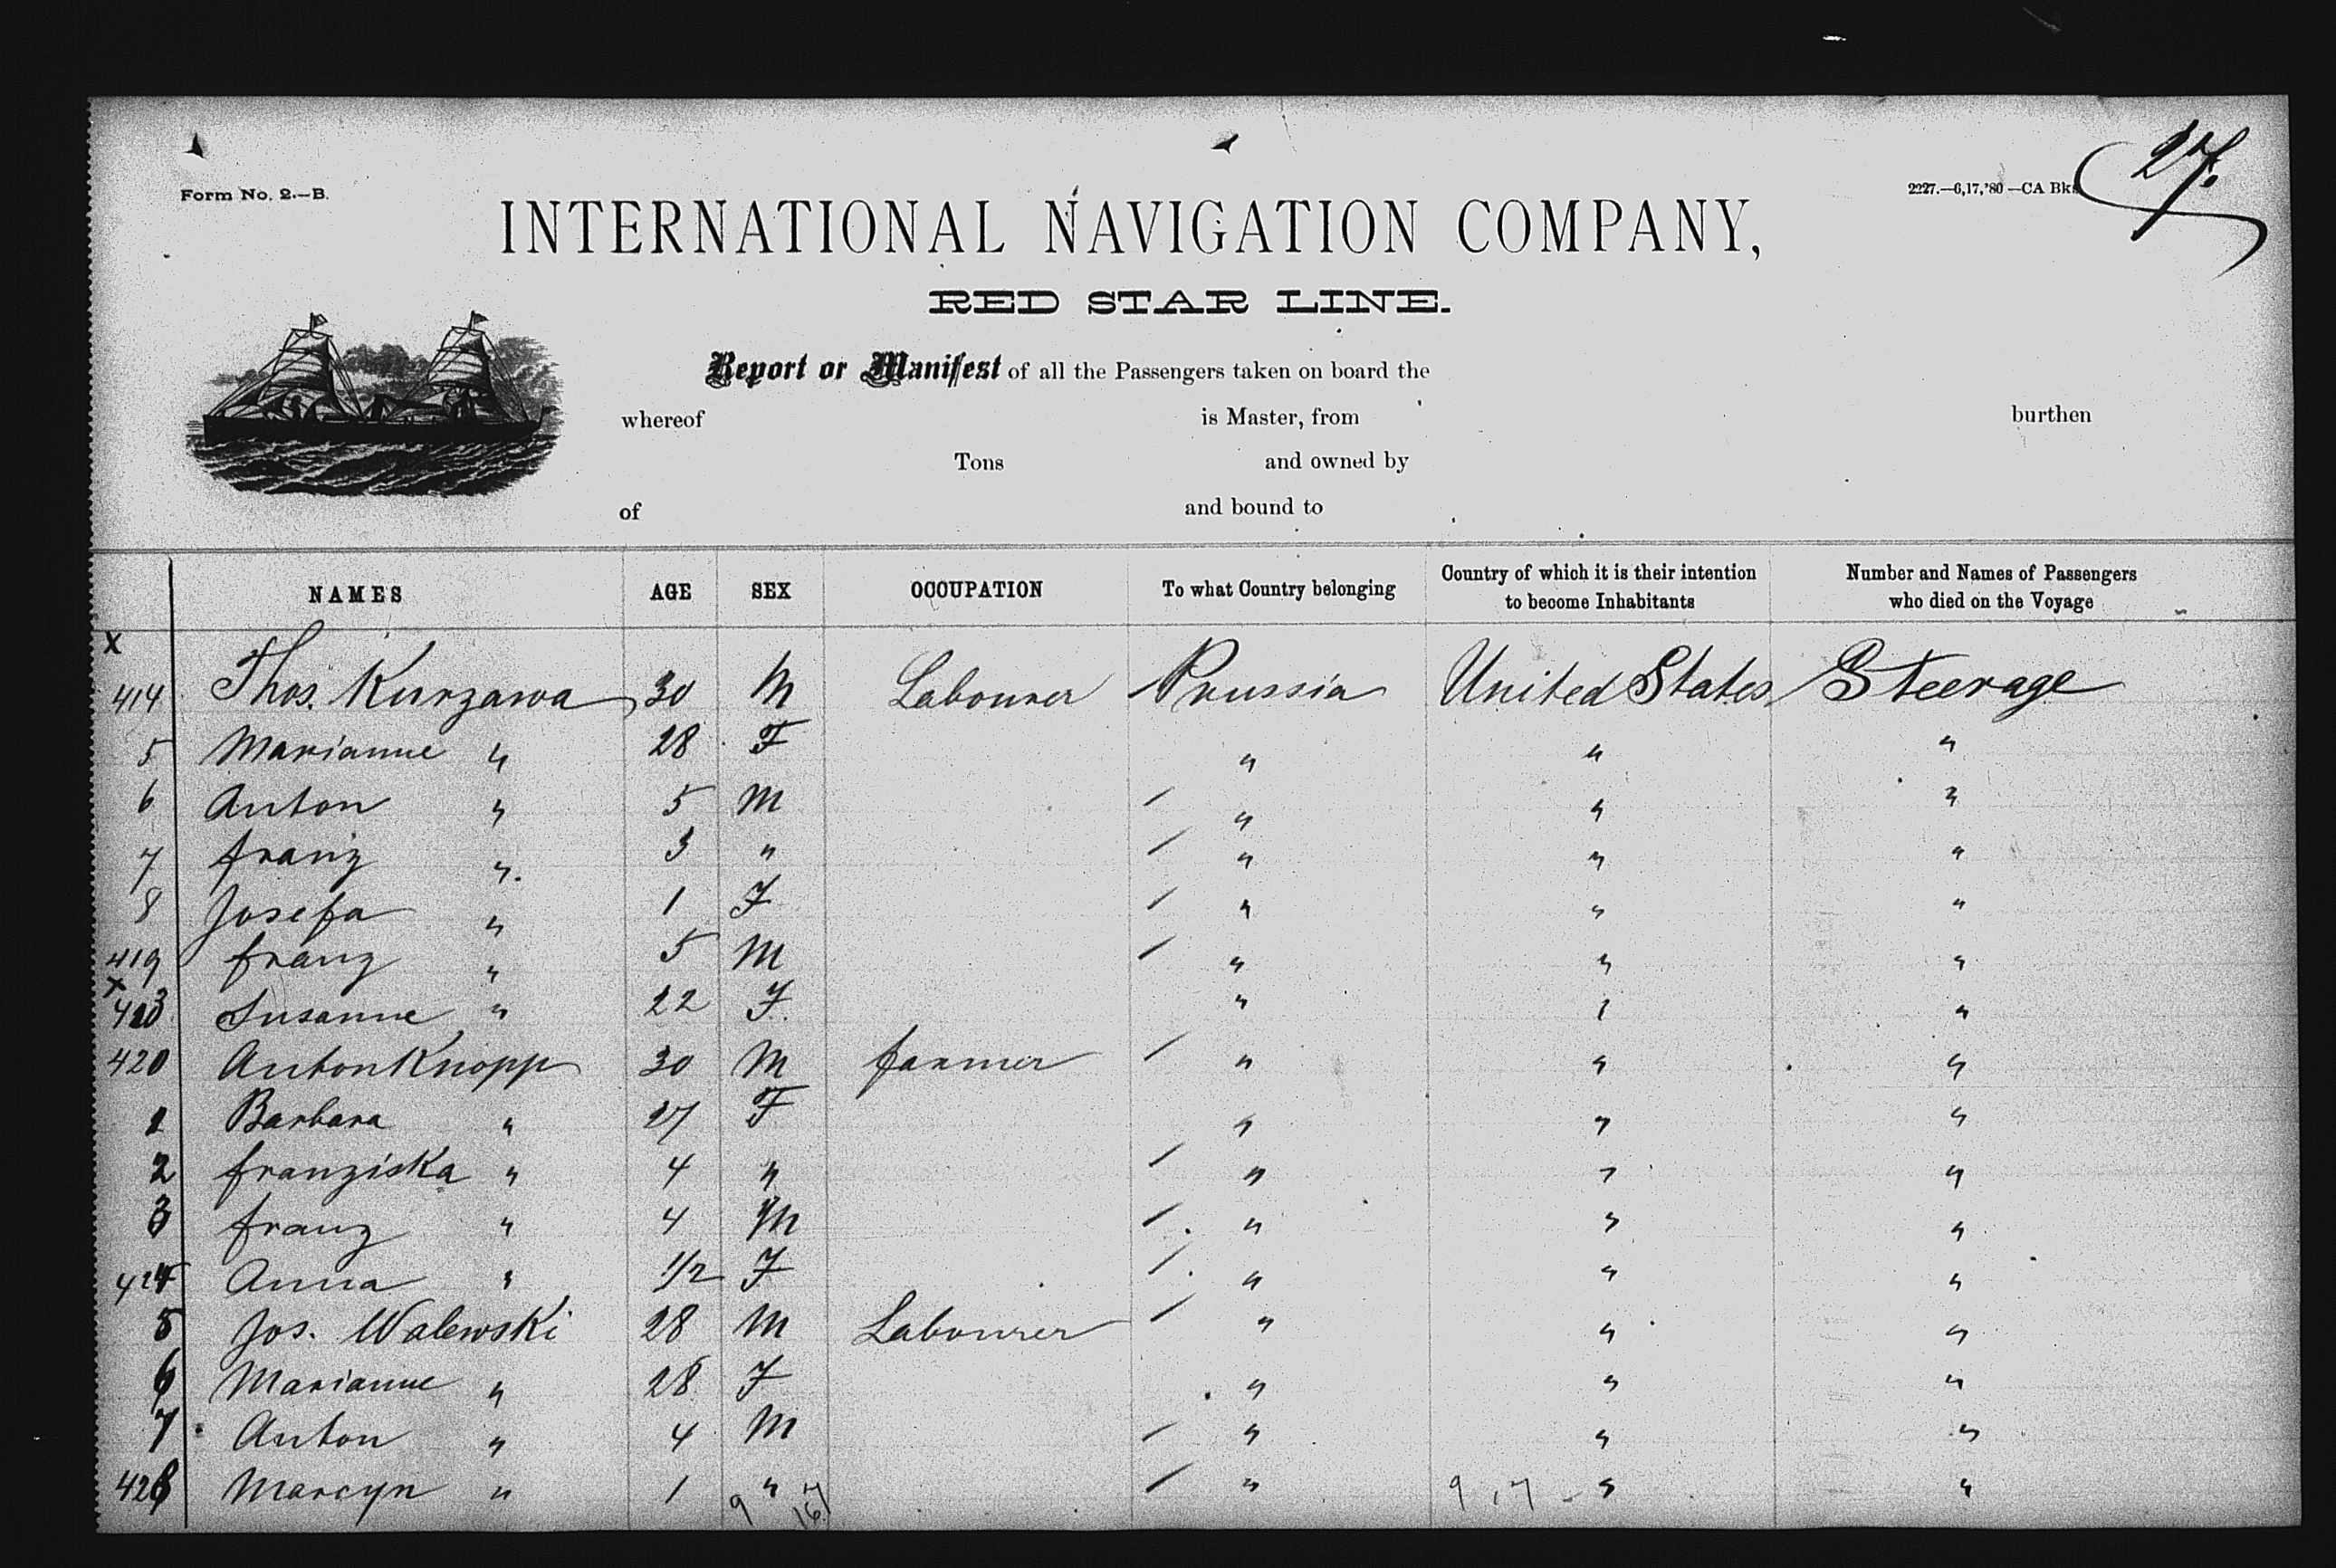 27.
Form No. 2.—B.
2227.—6,17,'80—CA Bks
INTERNATIONAL NAVIGATION COMPANY,
RED STAR LINE.
Report or Manifest of all the Passengers taken on board the
whereof is Master, from burthen
Tons and owned by
of and bound to
NAMES AGE SEX OCCUPATION To what Country belonging Country of which it is their intention to become Inhabitants Number and Names of Passengers who died on the Voyage
x
414 Thos. Kurzawa 30 M Labourer Prussia United States Steerage
5 Marianne " 28 F " " "
6 Anton " 5 M / " " "
7 franz " 3 " / " " "
8 Josefa " 1 F / " " "
419 franz " 5 M / " " "
x
Susanne " 22 F. " " "
420 Anton Knopp 30 M farmer / " " "
1 Barbara " 27 F " " "
2 franziska " 4 " / " " "
3 franz " 4 M / " " "
424 Anna " 1/2 F / " " "
5 Jos. Walewski 28 M Labourer / " " "
6 Marianne " 28 F " " "
7 Anton " 4 M / " " "
428 Marcyn " 1 " / " " "
9 167 9 17 -